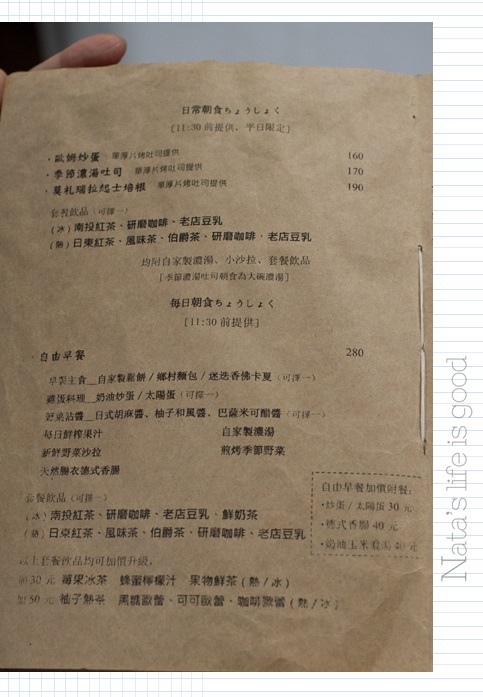 日常朝食ちょうしょく
[11:30 前提供、平日限定]
・歐姆炒蛋 單厚片烤吐司提供 160
・季節濃湯吐司 單厚片烤吐司提供 170
・莫札瑞拉起士培根 單厚片烤吐司提供 190
套餐飲品(可擇一)
(冰)南投紅茶、研磨咖啡、老店豆乳
(熱)日東紅茶、風味茶、伯爵茶、研磨咖啡、老店豆乳
均附自家製濃湯、小沙拉、套餐飲品
[季節濃湯吐司朝食為大碗濃湯]
每日朝食ちょうしょく
[11:30 前提供]
・自由早餐 280
早製主食__自家製鬆餅 / 鄉村麵包 / 迷迭香佛卡夏(可擇一)
雞蛋料理__奶油炒蛋 / 太陽蛋(可擇一)
野菜沾醬__日式胡麻醬、柚子和風醬、巴薩米可醋醬(可擇一)
每日鮮榨果汁 自家製濃湯
新鮮野菜沙拉 煎烤季節野菜
天然腸衣德式香腸
套餐飲品(可擇一)
(冰)南投紅茶、研磨咖啡、老店豆乳、鮮奶茶
(熱)日東紅茶、風味茶、伯爵茶、研磨咖啡、老店豆乳
以上套餐飲品均可加價升級,
加30 元 莓果冰茶 蜂蜜檸檬汁 果物鮮茶(熱/冰)
加50 元 柚子熱茶 黑糖歐蕾、可可歐蕾、咖啡歐蕾(熱/冰)
自由早餐加價附餐:
・炒蛋 / 太陽蛋 30 元
・德式香腸 40 元
・奶油玉米濃湯 40 元
Nata's life is good